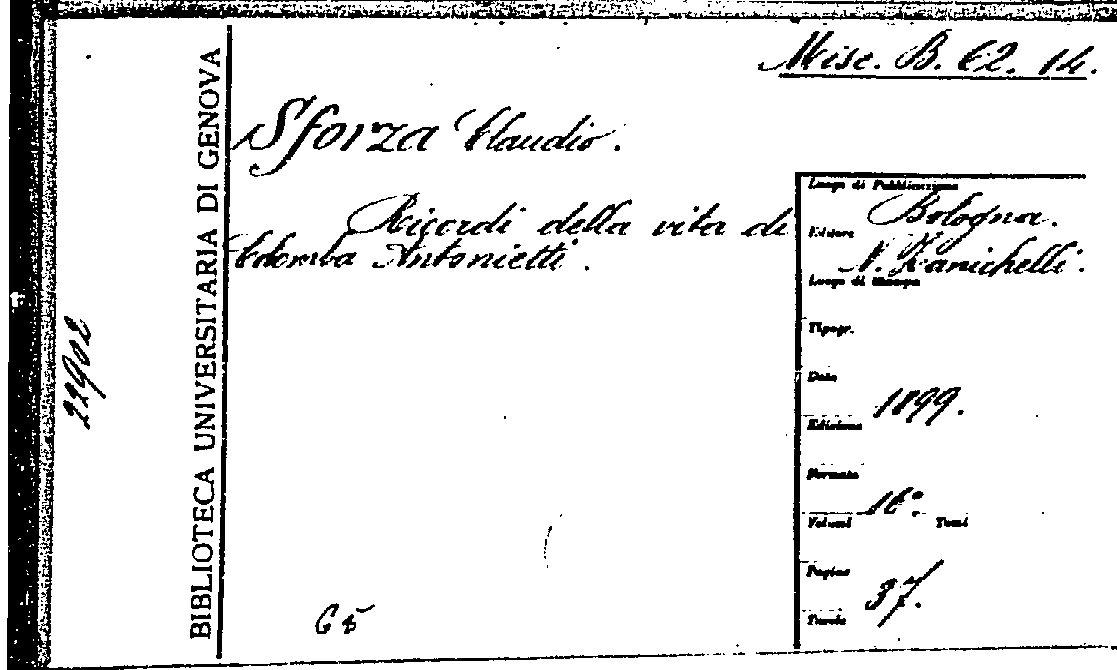 Misc. B. 62. 14.
Sforza Claudio.
Ricordi della vita di
Colomba Antonietti.
BIBLIOTECA UNIVERSITARIA DI GENOVA
22902
Luogo di Pubblicazione
Bologna.
Editore
N. Zanichelli.
Luogo di Stampa
Tipogr.
Data
1899.
Edizione
Formato
16°.
Volumi Tomi
Pagine
37.
Tavole
G5